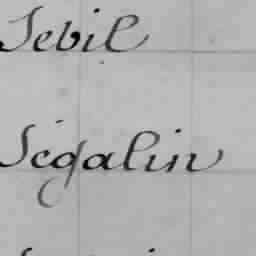 Sebil
Ségalin